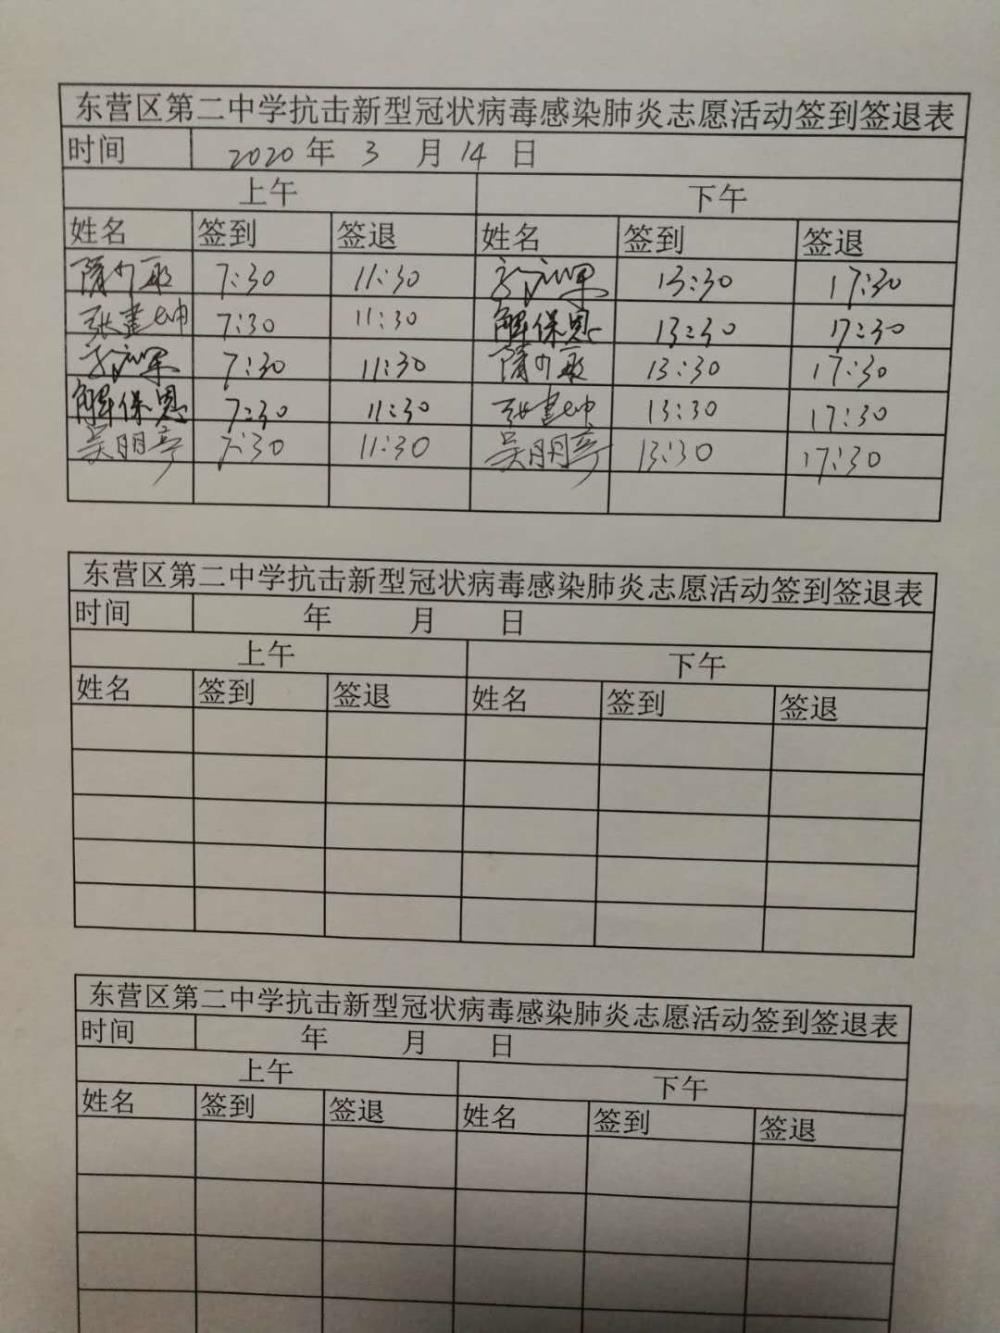 东营区第二中学抗击新型冠状病毒感染肺炎志愿活动签到签退表
时间 2020 年 3 月 14 日
上午 下午
姓名 签到 签退 姓名 签到 签退
隋 7:30 11:30 13:30 17:30
张建坤 7:30 11:30 解保恩 13:30 17:30
7:30 11:30 隋 13:30 17:30
解保恩 7:30 11:30 张建坤 13:30 17:30
吴朋亭 7:30 11:30 吴朋亭 13:30 17:30
东营区第二中学抗击新型冠状病毒感染肺炎志愿活动签到签退表
时间 年 月 日
上午 下午
姓名 签到 签退 姓名 签到 签退
东营区第二中学抗击新型冠状病毒感染肺炎志愿活动签到签退表
时间 年 月 日
上午 下午
姓名 签到 签退 姓名 签到 签退